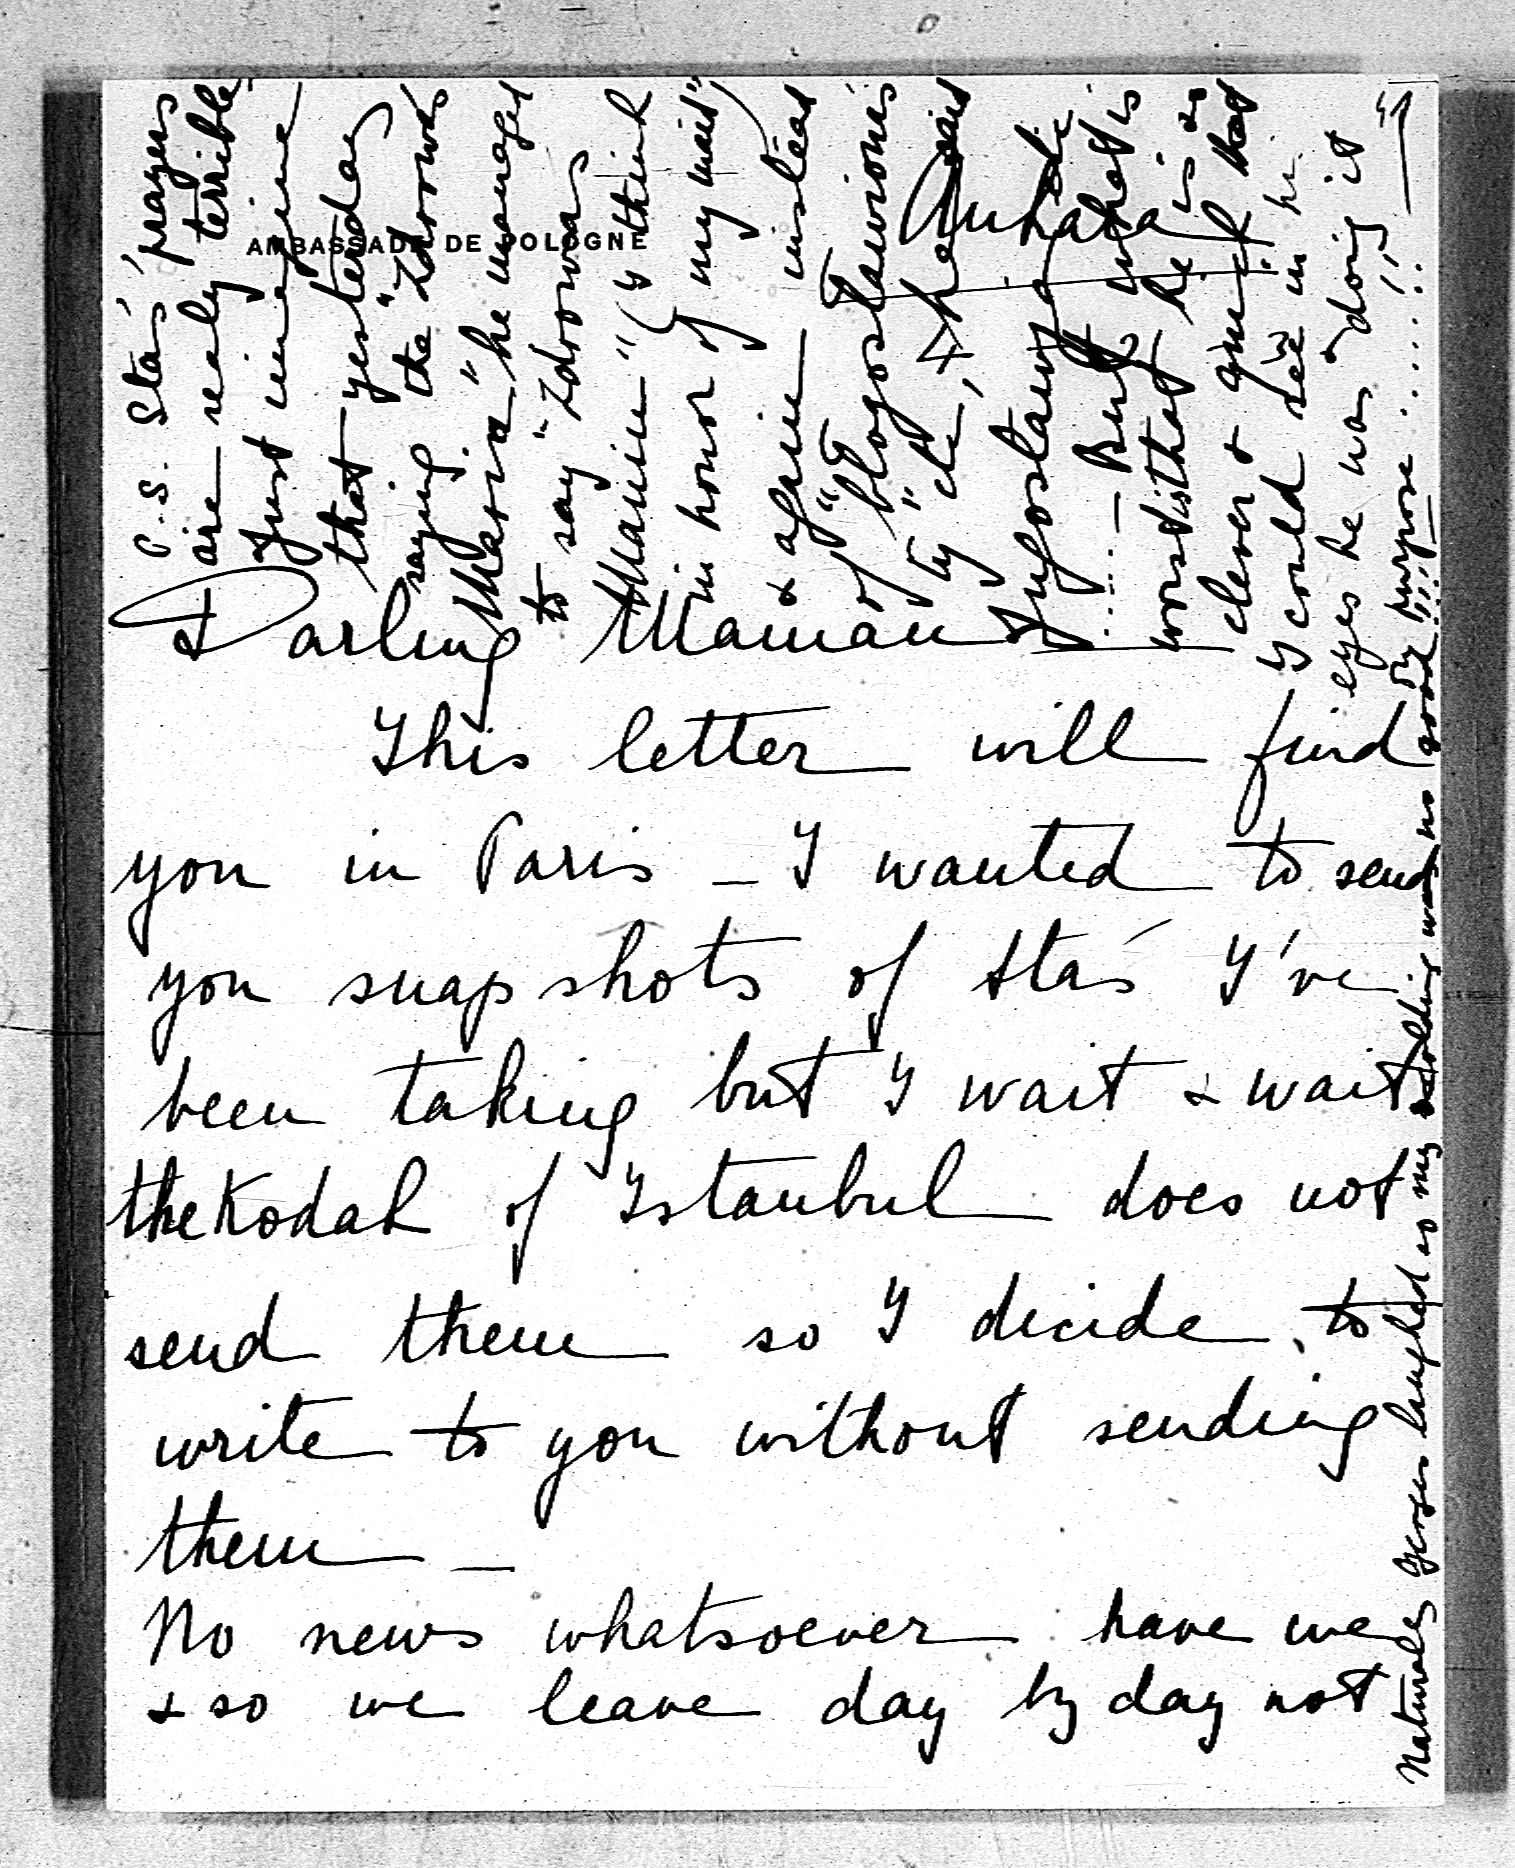 AMBASSADE DE POLOGNE
Ankara
Darling Maman
This letter will find
you in Paris — I wanted to send
you snapshots of Staś I've
been taking but I wait & wait
the Kodak of Istanbul does not
send them so I decide to
write to you without sending
them —
No news whatsoever have we
& so we leave day by day not
P.S. Staś' prayers
are realy terrible
Just imagine
that yesterday
saying the "Zdrowaś
Maria" he managed
to say "Zdrowaś
Maniu" (I think
in honor of my maid)
& after instead
of "błogosławionaś
ty" etc, he said
"Jugosławia
..... — But what is
worst is that he is so
clever & quick that
I could see in his
eyes he was doing it
on purpose ......!!
Naturaly laughed so my scolding was no good!!!